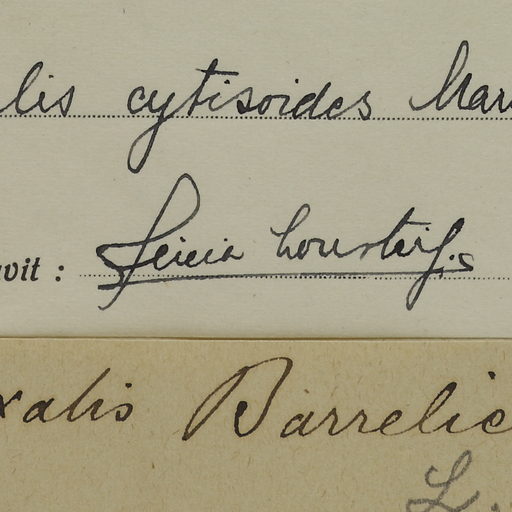 lis cytisoides Mar
vit : Alicia Lourteig.
xalis Barrelie
L.